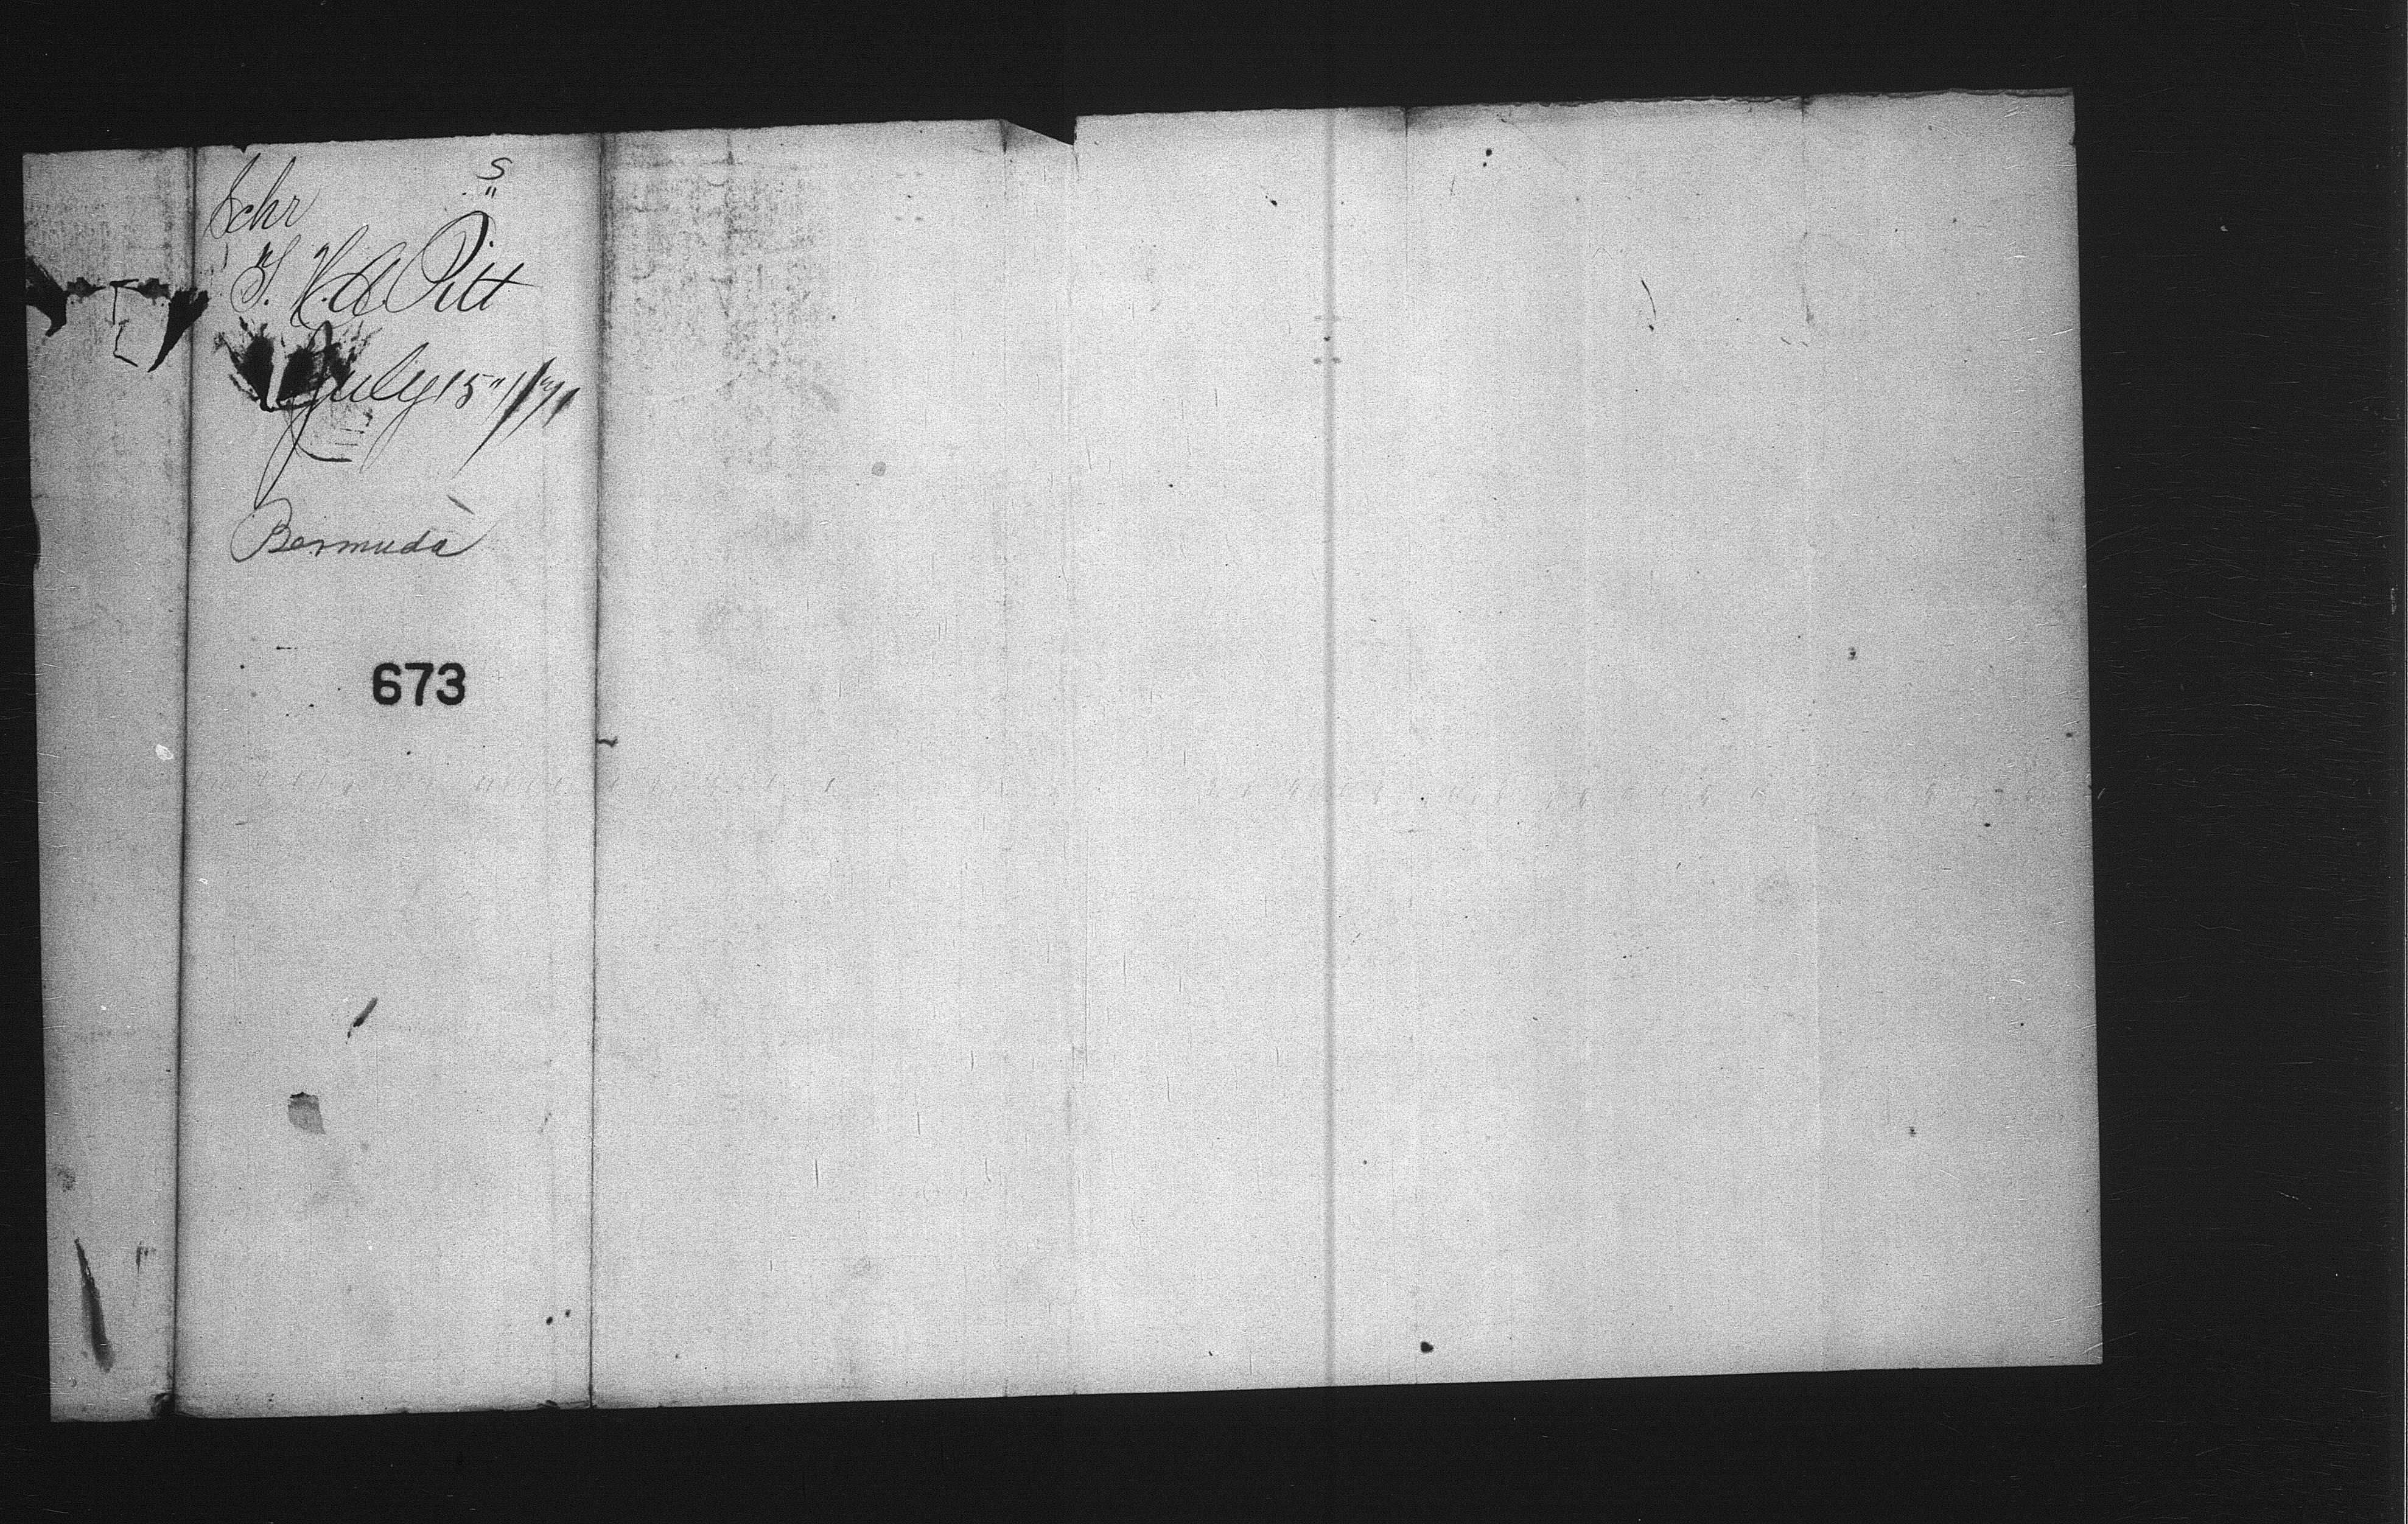 S
"
Schr
"S. H. A Pitt
July 15"
Bermuda
673